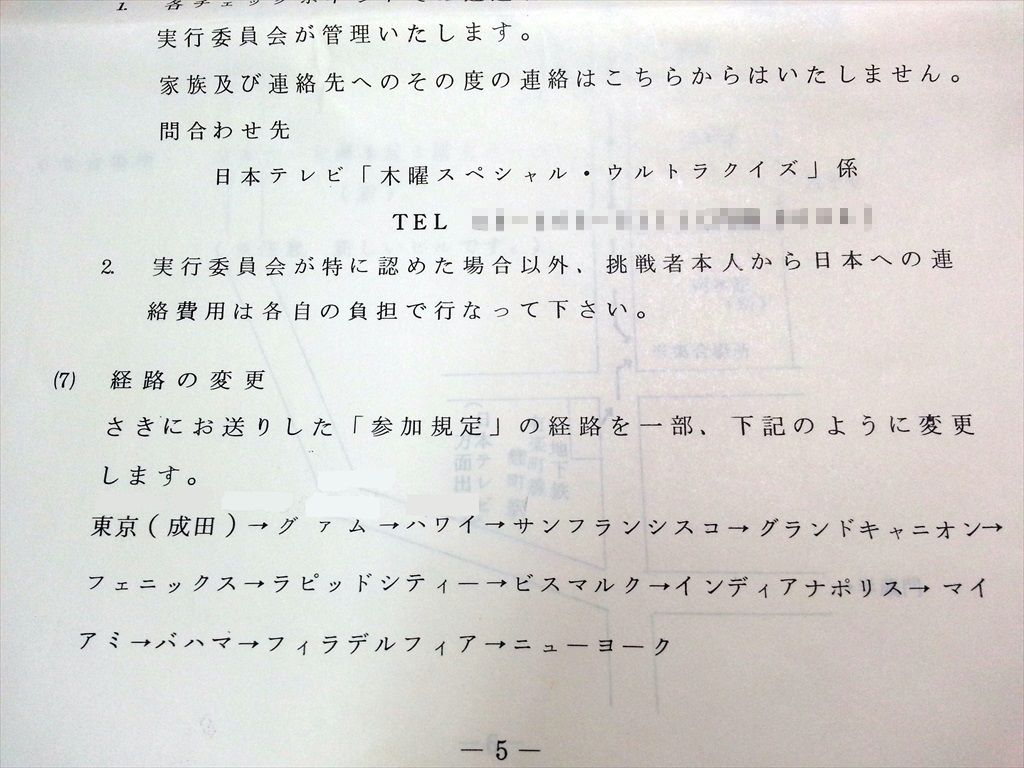 1. 各チェックポイント
実行委員会が管理いたします。
家族及び連絡先へのその度の連絡はこちらからはいたしません。
問合わせ先
日本テレビ「木曜スペシャル・ウルトラクイズ」係
TEL
2. 実行委員会が特に認めた場合以外、挑戦者本人から日本への連
絡費用は各自の負担で行なって下さい。
(7) 経路の変更
さきにお送りした「参加規定」の経路を一部、下記のように変更
します。
東京(成田)→グァム→ハワイ→サンフランシスコ→グランドキャニオン→
フェニックス→ラピッドシティー→ビスマルク→インディアナポリス→マイ
アミ→バハマ→フィラデルフィア→ニューヨーク
—5—